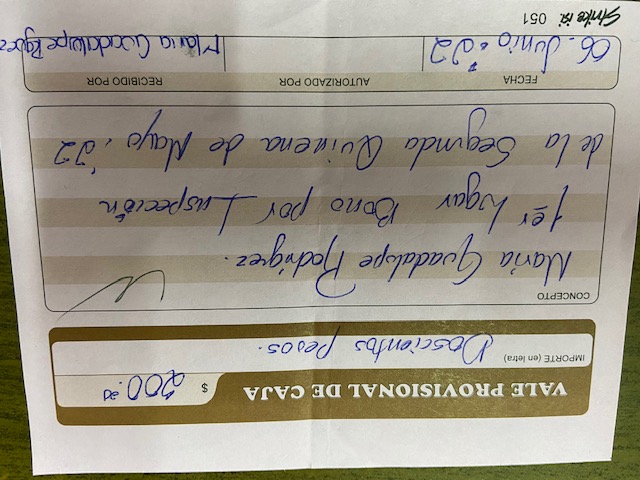 VALE PROVISIONAL DE CAJA
$ 200.00
IMPORTE (en letra)
Doscientos pesos.
CONCEPTO
María Guadalupe Rodrígrez.
1er lugar Bono por Inspección
de la Segunda Quincena de Mayo '22
FECHA
AUTORIZADO POR
RECIBIDO POR
06. Junio. 22
María Guadalupe
Strike isi 051